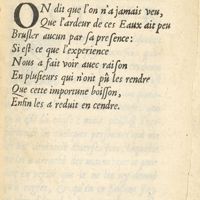 ON dit que l'on n'a jamais veu,
Que l'ardeur de ces Eaux ait peu
Brusler aucun par sa presence:
Si est-ce que l'experience
Nous a fait voir auec raison
En plusieurs qui n'ont pû les rendre
Que cette importune boisson,
Enfin les a reduit en cendre.